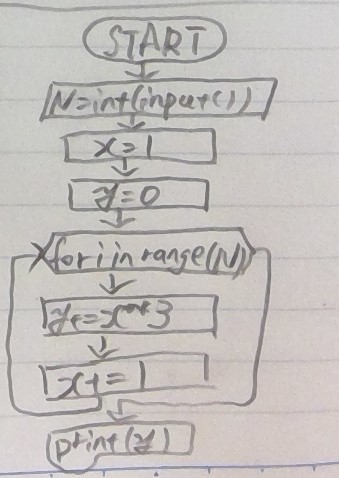 START
N=int(input())
x=1
y=0
for i in range(N)
y+=x**3
x+=1
print(y)